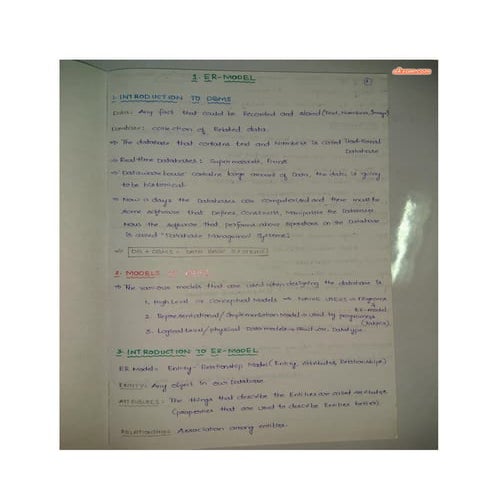 1. ER-MODEL
1. INTRODUCTION TO DBMS
Data: Any fact that could be Recorded and stored (Text, Numbers, Image)
Database: collection of Related data.
→ The database that contains text and Numbers is called Traditional Database
→ Real-time Databases: Supermarkets,
→ Dataware house contains large amount of Data, the data is going
to be historical.
→ Now a days the Databases are computerised and there must be
some software that Defines, Constructs, Manipulates the Database.
the software that performs above operations on the Database
is called "Database Management System".
→ DB + DBMS = DATA BASE SYSTEMS
2. MODELS
→ The various models that are used when designing the database is
1. High Level or Conceptual Models → Naive users →
ER-model
2. Representational / Implementation Model → used by programmers
3. Low Level / physical Data models → structure, Datatype
3. INTRODUCTION TO ER-MODEL
ER Model = Entity-Relationship Model (Entity, Attributes, Relationships)
ENTITY: Any object in our Database
ATTRIBUTES: The things that describe the Entities are called Attributes
(properties that are used to describe Entities better).
RELATIONSHIP: Association among entities.